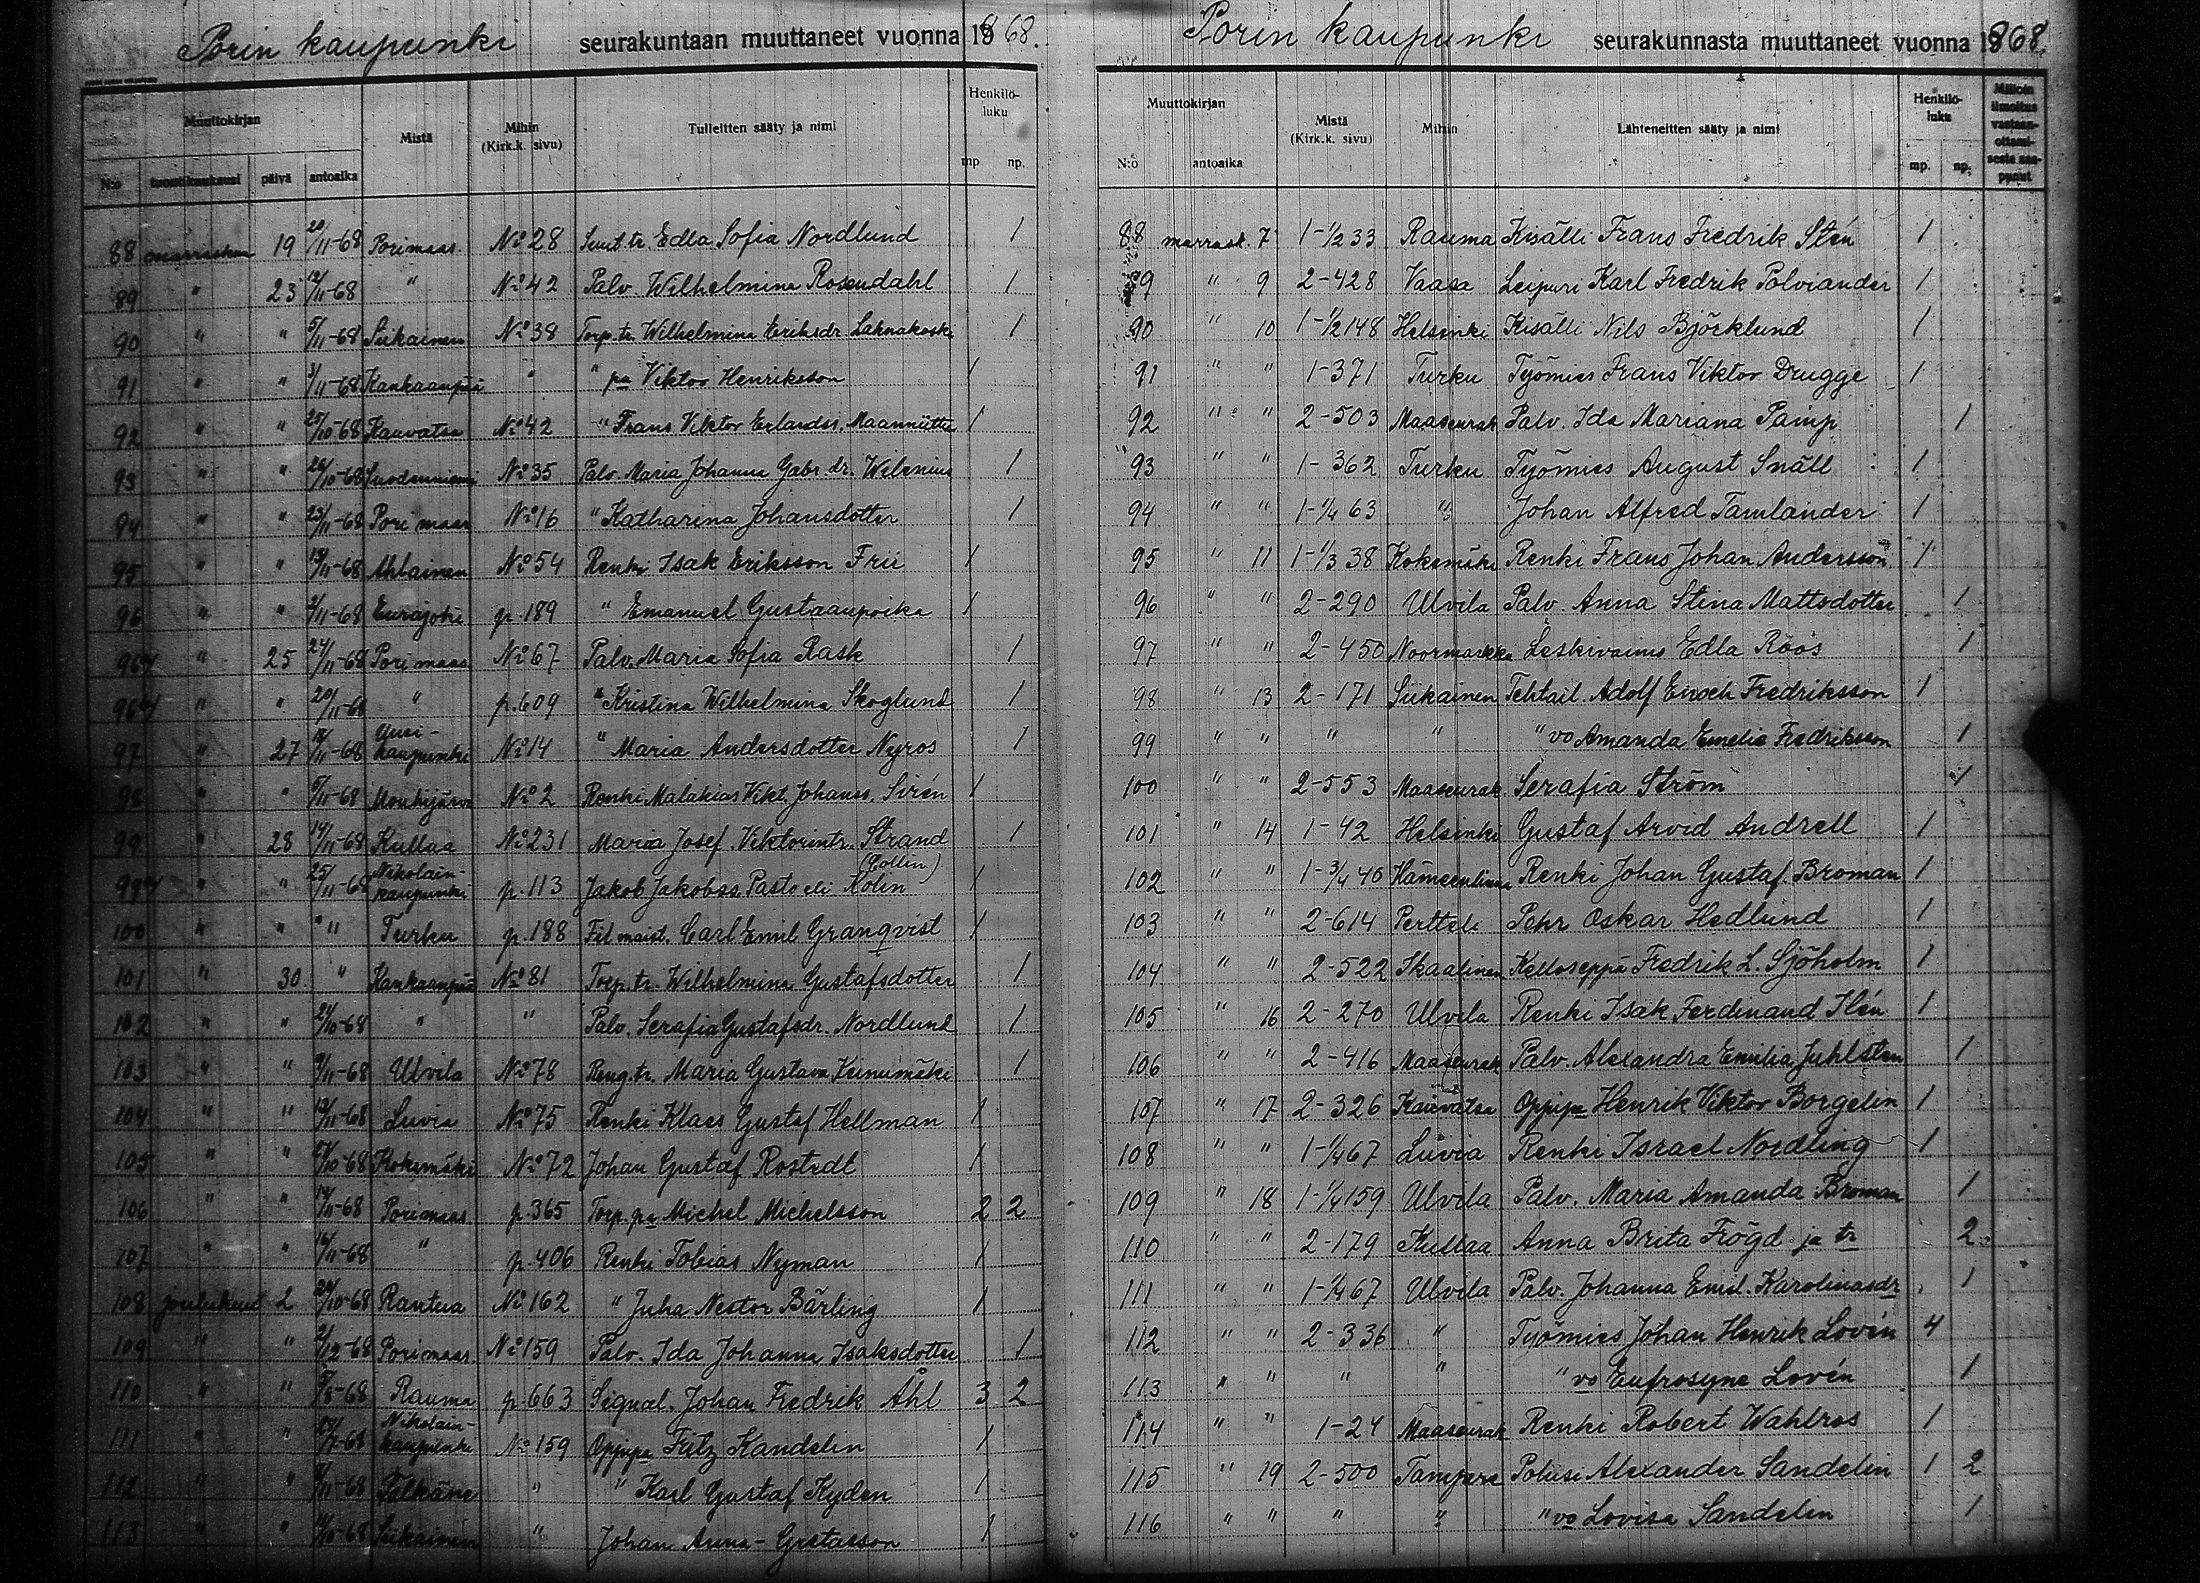 Porin kaupunki seurakuntaan muuttaneet vuonna 1868.
Muuttokirjan Mistä Mihin (Kirk.k. sivu) Tulleitten sääty ja nimi Henkilöluku
N:o tuontikuukausi päivä antoaika mp np.
88 marraskuu 19 20/11-68 Porimaas. No 28 Suut.tr. Edla Sofia Nordlund 1
89 " 23 12/11-68 " No 42 Palv. Wilhelmina Rosendahl 1
90 " " 5/11-68 Siikainen No 38 Torp.tr. Wilhelmina Eriksdr. Lahnakoski 1
91 " " 3/11-68 Kankaanpää " " pa Viktor Henriksson 1
92 " " 25/10-68 Kauvatsa No 42 " Frans Viktor Erlandss. Maanniitty 1
93 " " 26/10-68 Suodenniemi No 35 Palv. Maria Johanna Gabr.dr. Wilenius 1
94 " " 23/11-68 Pori maas No 16 " Katharina Johansdotter 1
95 " " 13/11-68 Ahlainen No 54 Renki Isak Eriksson Frii 1
96 " " 2/11-68 Eurajoki p. 189 " Emanuel Gustaanpoika 1
96 " 25 24/11-68 Porimaas No 67 Palv. Maria Sofia Rask 1
96 " " 20/11-68 " p. 609 " Kristina Wilhelmina Skoglund 1
97 " 27 18/11-68 Uusi-kaupunki No 14 " Maria Andersdotter Nyros 1
98 " " 5/11-68 Mouhijärvi No 2 Renki Malakias Vikt. Johanss. Sirén 1
99 " 28 14/11-68 Kullaa No 231 Maria Josef. Viktorintr. Strand 1
99 " " 25/11-68 Nikolain-kaupunki p. 113 Jakob Jakobss. Pasto eli Kolin (Collin) 1
100 " " " " Turku p. 188 Fil maist. Carl Emil Granqvist 1
101 " 30 " Kankaanpää No 81 Torp.tr. Wilhelmina Gustafsdotter 1
102 " " 24/10-68 " " Palv. Serafia Gustafsdr. Nordlund 1
103 " " 9/11-68 Ulvila No 78 Reng.tr. Maria Gustava Keinumäki 1
104 " " 13/11-68 Luvia No 75 Renki Klaes Gustaf Hellman 1
105 " " 27/10-68 Kokemäki No 72 Johan Gustaf Rostedt 1
106 " " 14/11-68 Porimaas p. 365 Torp.pa Michel Michelsson 2 2
107 " " 16/11-68 " p. 406 Renki Tobias Nyman 1
108 jouluk. 2 24/10-68 Rantua No 162 " Juha Nestor Bärling 1
109 " " 2/12-68 Porimaas. No 159 Palv. Ida Johanna Isaksdotter 1
110 " " Rauma p. 663 Signal. Johan Fredrik Åhl 3 2
111 " " 27/7-68 Nikolain-kaupunki No 159 Oppipa Fritz Kandelin 1
112 " " Pälkäne " " Karl Gustaf Kyden 1
113 " " Siikainen " Johan Anna-Gretasson 1
Porin kaupunki seurakunnasta muuttaneet vuonna 1868.
Muuttokirjan Mistä (Kirk.k. sivu) Mihin Lähteneitten sääty ja nimi Henkilöluku Milloin ilmoitus vastaan-ottami-sesta saa-punut
N:o antoaika mp. np.
88 marrask. 7 1-1/2 33 Rauma Kisälli Frans Fredrik Stén 1
89 " 9 2-428 Vaasa Leipuri Karl Fredrik Polviander 1
90 " 10 1-1/2 148 Helsinki Kisälli Nils Björklund 1
91 " " 1-371 Turku Työmies Frans Viktor Drugge 1
92 " " 2-503 Maaseurak Palv. Ida Mariana Pamp 1
93 " " 1-362 Turku Työmies August Snäll 1
94 " " 1-1/4 63 " Johan Alfred Tamlander 1
95 " 11 1-1/3 38 Kokemäki Renki Frans Johan Andersson 1
96 " " 2-290 Ulvila Palv. Anna Stina Mattsdotter 1
97 " " 2-450 Noormarkku Leskivaimo Edla Röös 1
98 " 13 2-171 Siikainen Tehtail. Adolf Enoch Fredriksson 1
99 " " " " " vo Amanda Emelie Fredriksson 1
100 " " 2-553 Maaseurak Serafia Ström 1
101 " 14 1-42 Helsinki Gustaf Arvid Andrell 1
102 " " 1-3/4 40 Hämeenlinna Renki Johan Gustaf Broman 1
103 " " 2-614 Pertteli Pehr Oskar Hedlund 1
104 " " 2-522 Ikaalinen Kelloseppä Fredrik L. Sjöholm 1
105 " 16 2-270 Ulvila Renki Isak Ferdinand Ilén 1
106 " " 2-416 Maaseurak Palv. Alexandra Emilia Juhlsten 1
107 " 17 2-326 Kauvatsa Oppipa Henrik Viktor Borgelin 1
108 " " 1-1/4 67 Luvia Renki Israel Nordling 1
109 " 18 1-1/4 159 Ulvila Palv. Maria Amanda Broman 1
110 " " 2-179 Kullaa Anna Brita Frögd ja tr 2
111 " " 1-1/4 67 Ulvila Palv. Johanna Emil. Karolinasdr 1
112 " " 2-336 " Työmies Johan Henrik Lovén 4
113 " " " " " vo Eufrosyne Lovén 1
114 " " 1-24 Maaseurak Renki Robert Wahlros 1
115 " 19 2-500 Tampere Poliisi Alexander Sandelin 1 2
116 " " " " " vo Lovisa Sandelin 1